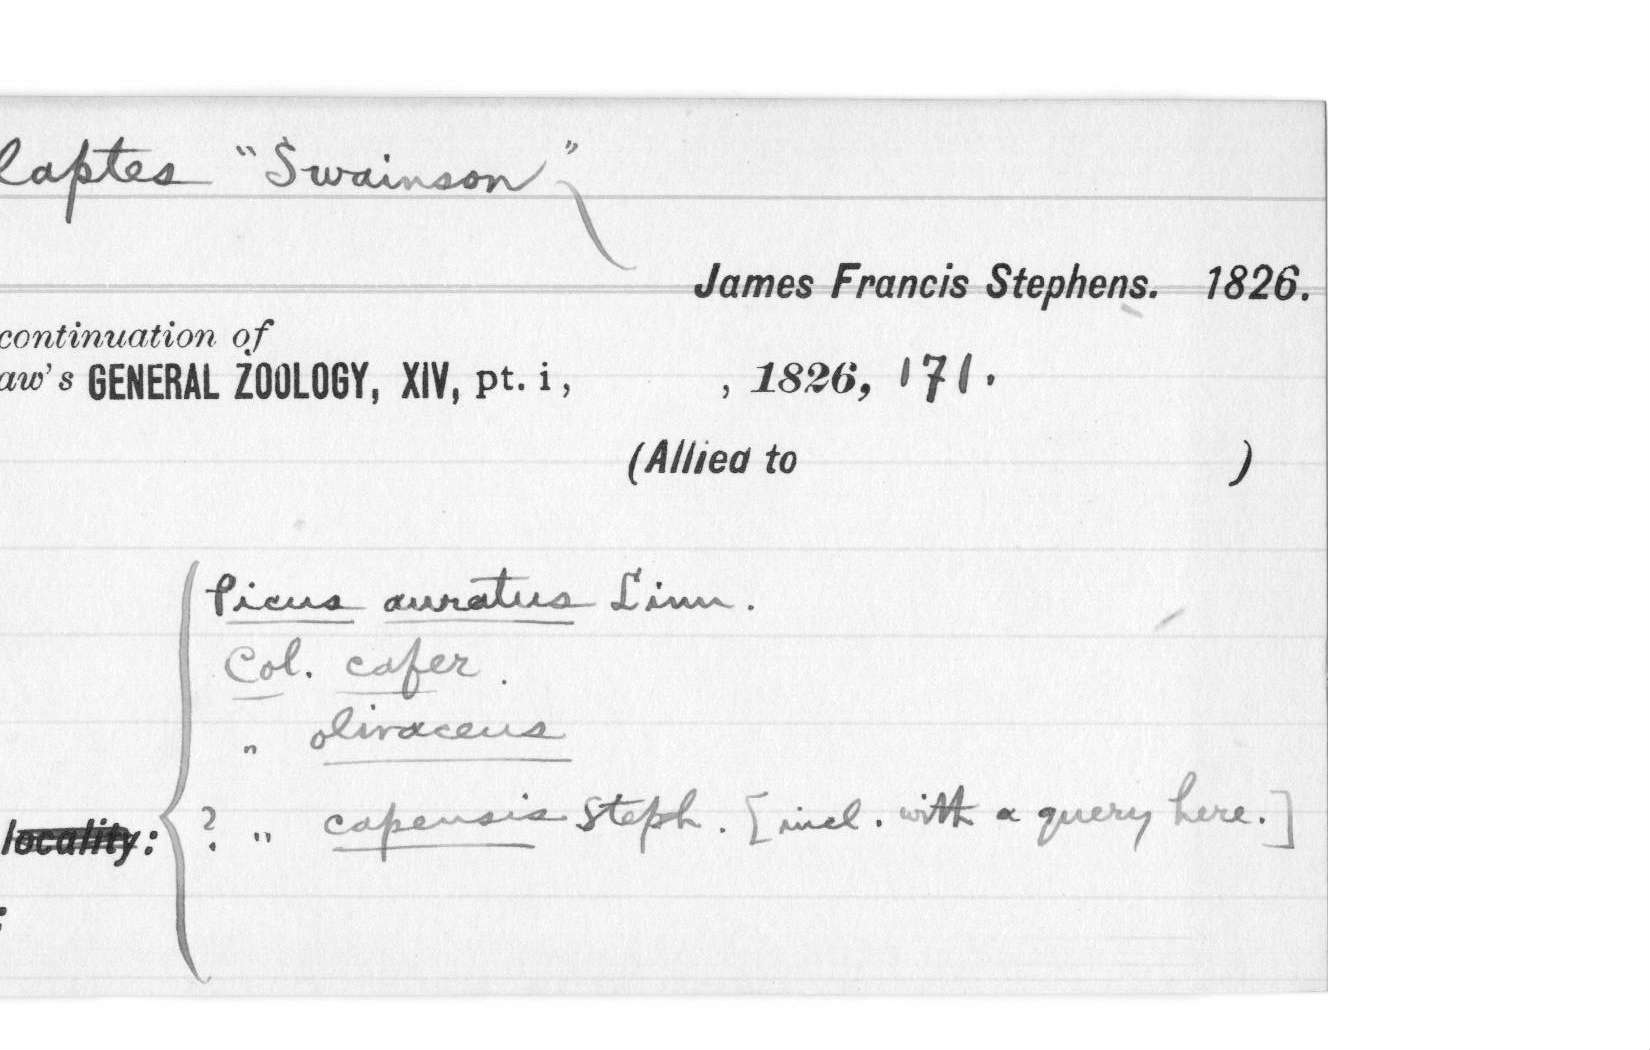 laptes "Swainson"
James Francis Stephens. 1826.
continuation of
aw's GENERAL ZOOLOGY, XIV, pt. i, , 1826, 171.
(Allied to )
Picus auratus Linn.
Col. cafer.
" olivaceus
locality: ? " capensis Steph. [incl. with a query here.]
;